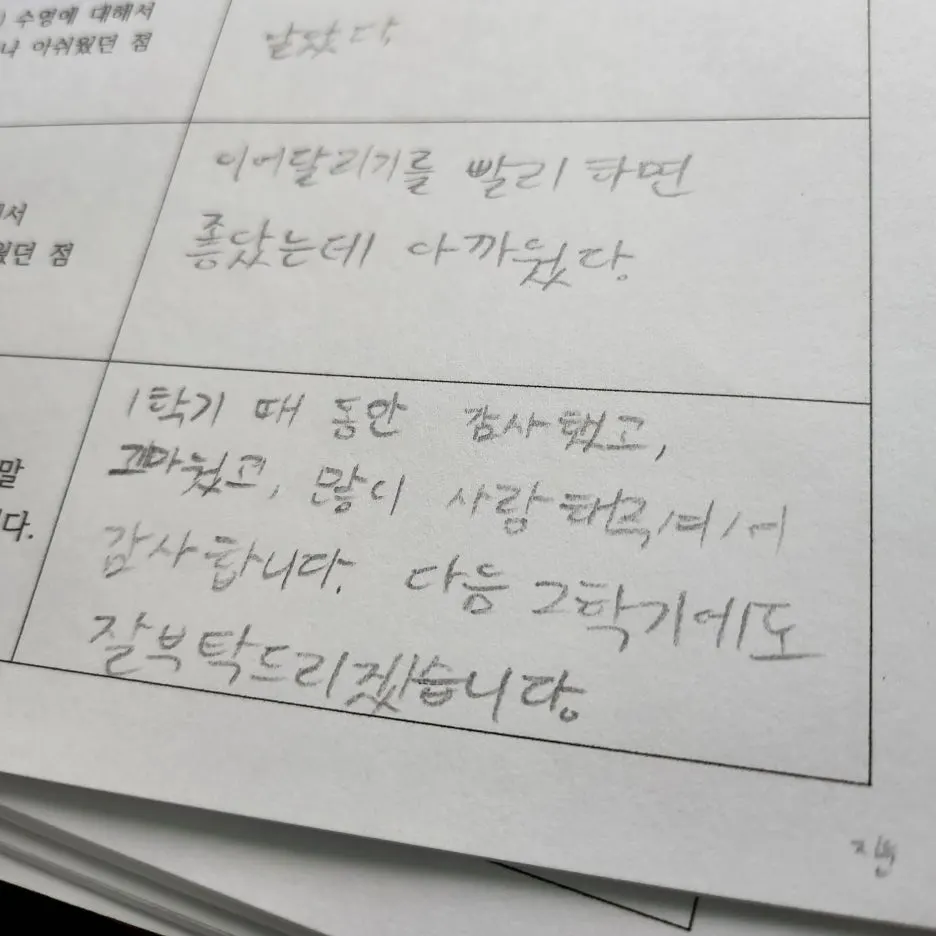 수영에 대해서
나 아쉬웠던 점
말았다
이어달리기를 빨리 하면
좋았는데 아까웠다.
에서
웠던 점
1학기 때 동안 감사했고,
고마웠고, 많이 사랑해주셔서
감사합니다. 다음 2학기에도
잘부탁드리겠습니다.
말
니다.